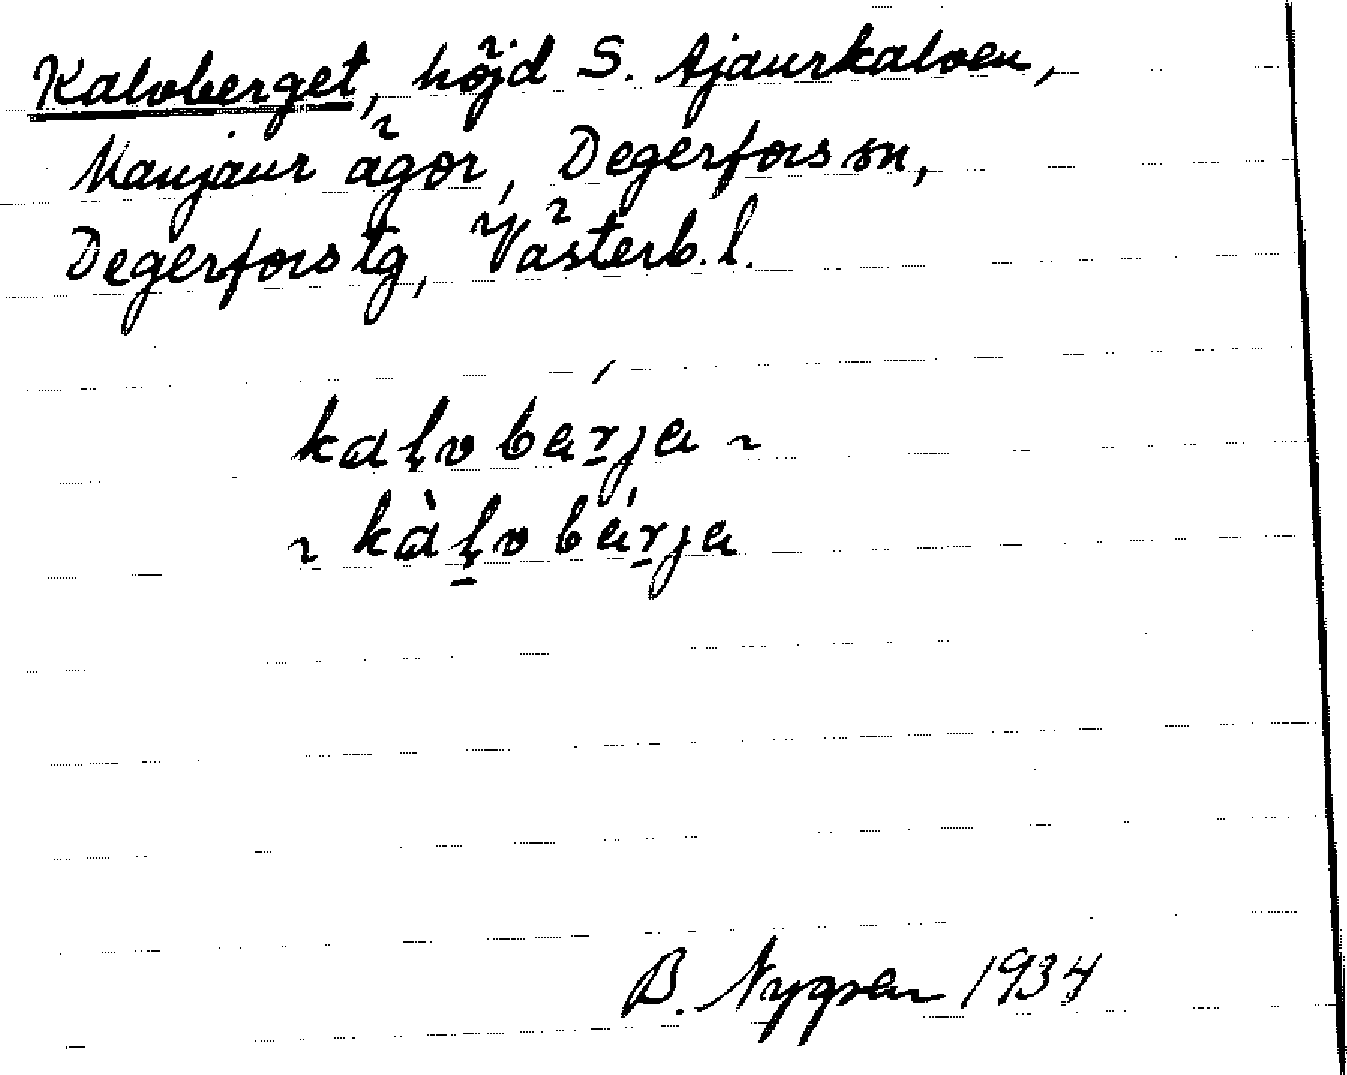 Kalvberget, höjd S. Ajaurkalven,
Manjaur ägor, Degerfors sn,
Degerfors tg, Västerb. l.
kaḷvbárja ~
~ kàḷvbárja
B. Nygren 1934